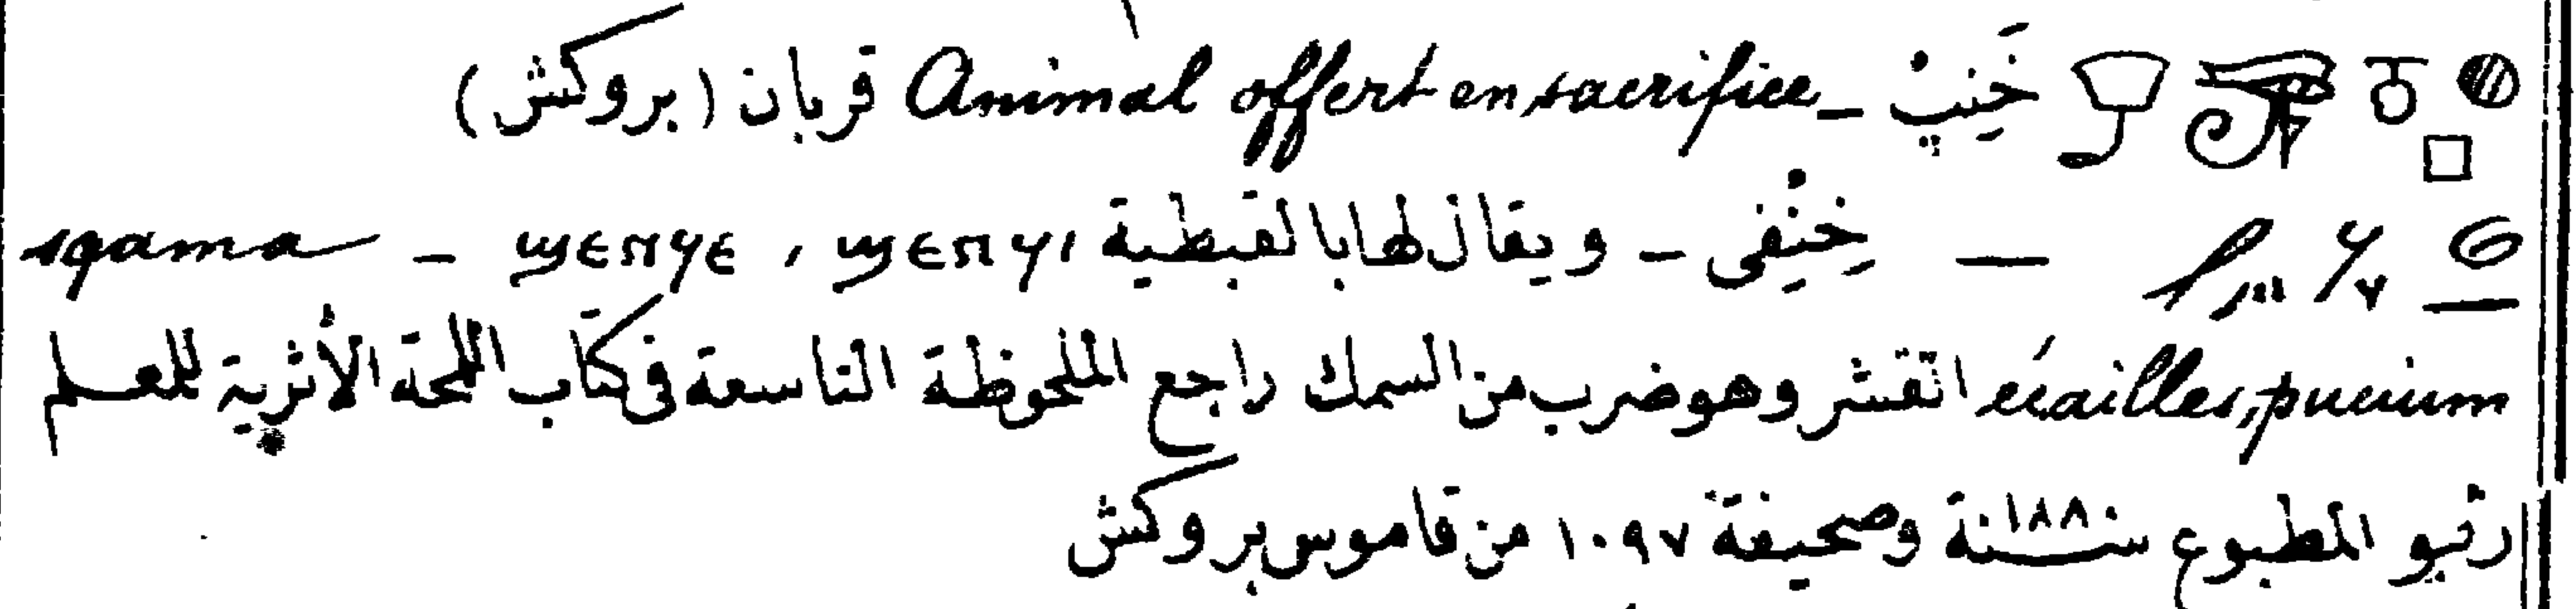 خَنِپْ – Animal offert en sacrifice قربان (بروكش)
— خِنِفِى – ويقال لها بالقبطية ϣⲉⲛϥⲓ , ϣⲉⲛϥⲉ – sqama
écailles, pucium اتقشر وهو ضرب من السمك راجع الملحوظة التاسعة فى كتاب اللمحة الأثرية للمعلم
رڤيو المطبوع سنة ١٨٨٠ وصحيفة ١٠٩٧ من قاموس بروكش